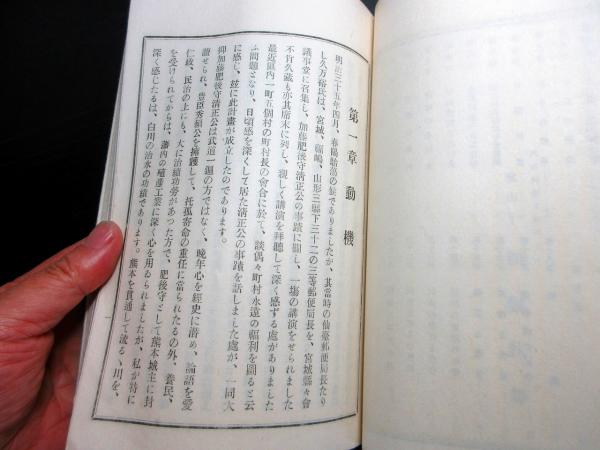 第一章動機
明治三十五年四月、春陽駘蕩の候でありましたが、其當時の仙臺郵便局長たり
し久万裕氏は、宮城、福嶋、山形三縣下三十二の三等郵便局長を、宮城縣々會
議事堂に召集し、加藤肥後守清正公の事蹟に關し、一塲の講演をせられました
不肖久藏も亦其席末に列し、親しく講演を拜聽して深く感ずる處がありました
最近區內一町五個村の町村長の會合に於て、談偶々町村永遠の福利を圖ると云
ふ問題となり、日頃感を深くして居た清正公の事蹟を話しました處が、一同大
に感じ、玆に此計畫が成立したのであります。
抑加藤肥後守清正公は武道一遍の方ではなく、晩年心を經史に潜め、論語を愛
讀せられ、豊臣秀頼公を擁護して、托孤寄命の重任に當られたるの外、養民、
仁政、民治の上にも、大に治績功勞があつた方で、肥後守として熊本城主に封
を受けられてからは、藩內の殖產工業に深く心を用ゐられましたが、私が特に
深く感じたるは、白川の治水の功績であります。熊本を貫通して流るゝ川を、